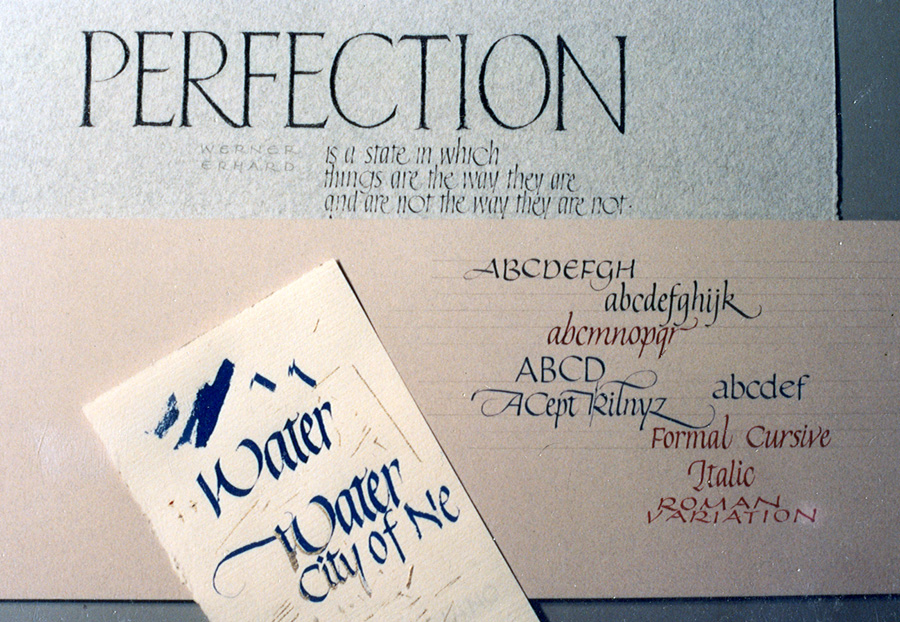 PERFECTION
WERNER
ERHARD
is a state in which
things are the way they are
and are not the way they are not.
ABCDEFGH
abcdefghijk
abcmnopqr
ABCD
abcdef
ACept kilnyz
Formal Cursive
Italic
ROMAN
VARIATION
Water
Water
City of Ne